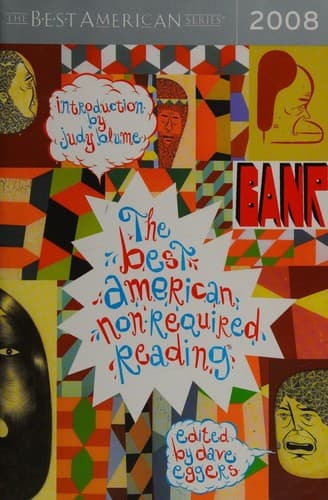 THE BEST AMERICAN SERIES®
2008
introduction
by
judy blume
BANK
The
best
american
nonrequired
reading
edited
by dave
eggers